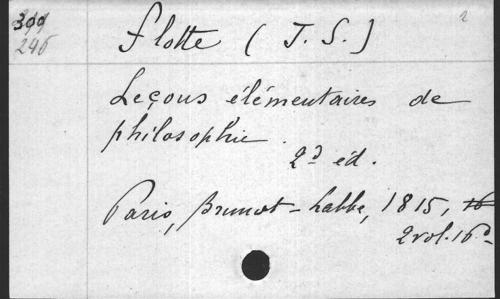 399 Flotte (J. S.) 2
246
Leçons élémentaires de
philosophie.
2d éd.
Paris, Brunot-Labbe, 1815, 16
2 vol. 16o